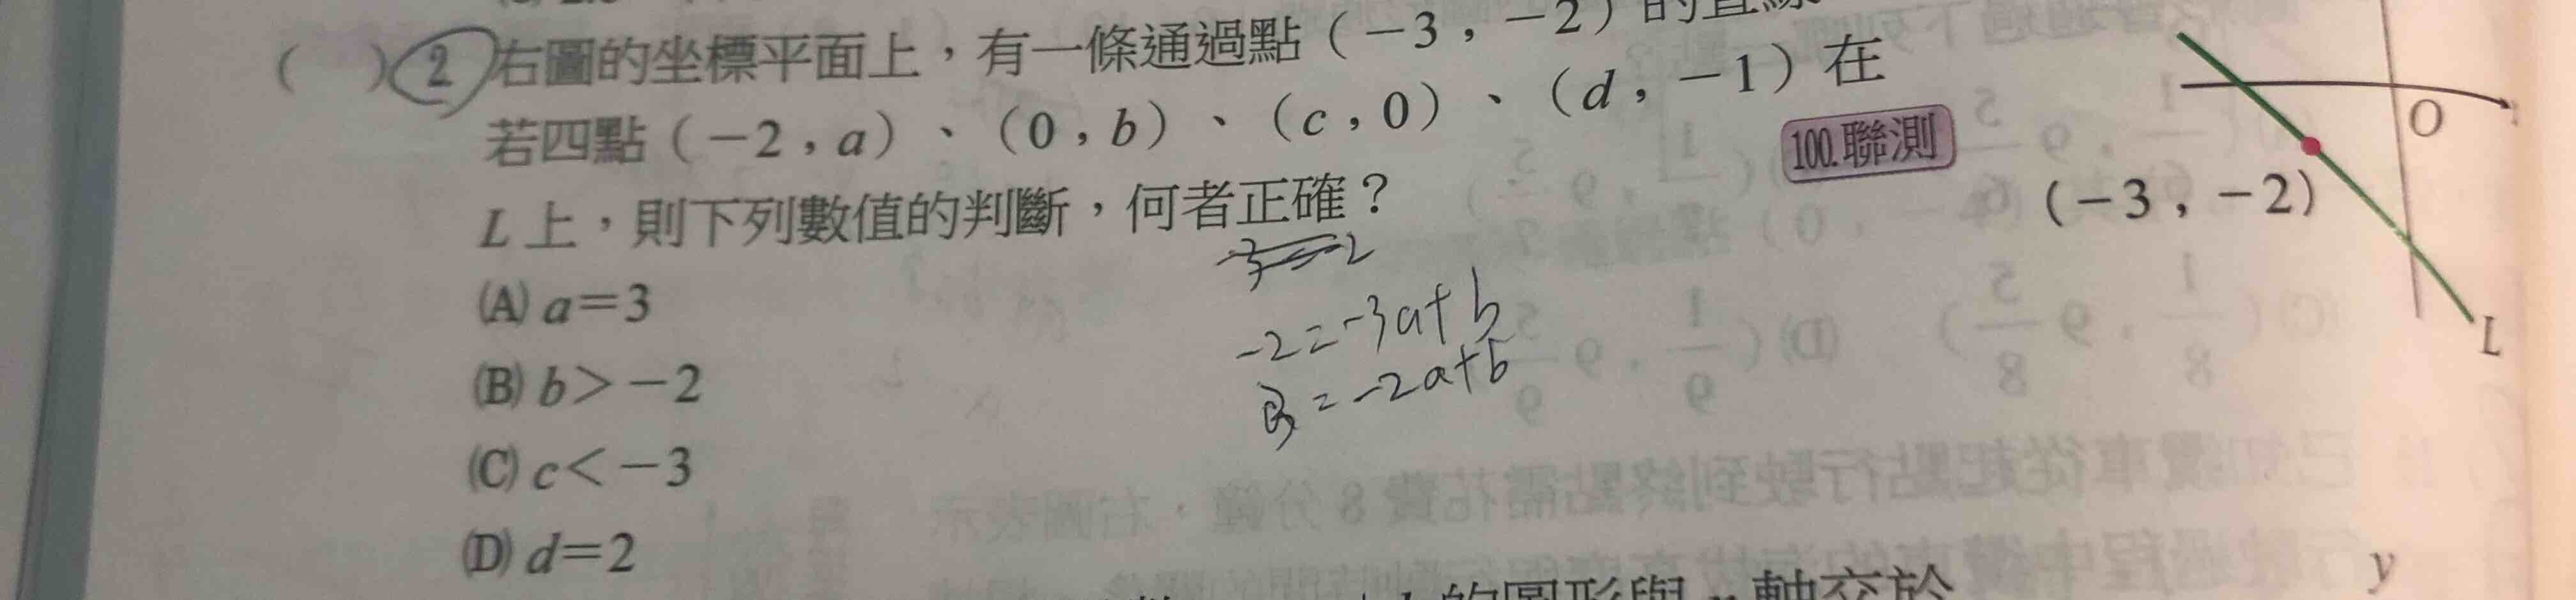 ( ) 2 右圖的坐標平面上，有一條通過點（－3，－2）的直線
若四點（－2，a）、（0，b）、（c，0）、（d，－1）在
L 上，則下列數值的判斷，何者正確？
100.聯測
(A) a＝3
(B) b＞－2
(C) c＜－3
(D) d＝2
-2=-3a+b
=-2a+b
O
（－3，－2）
L
y
的圖形與 y 軸交於